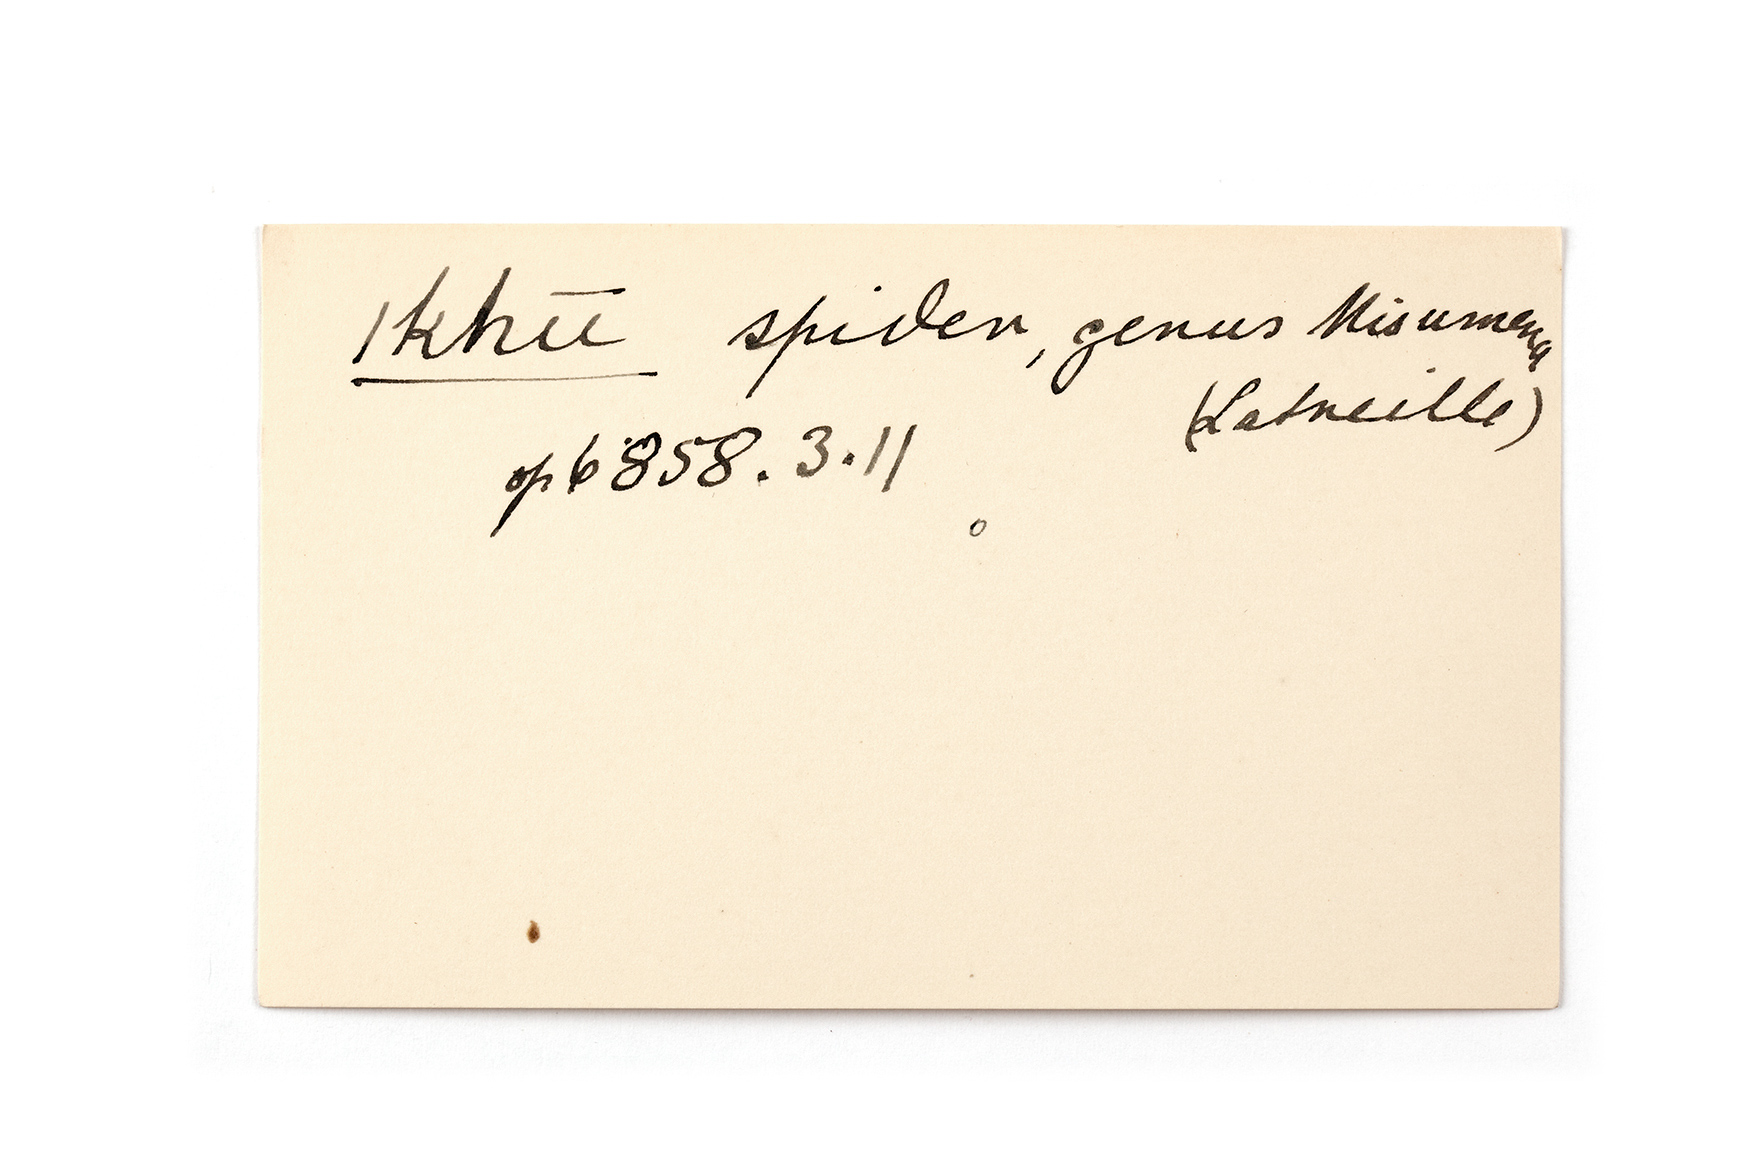 ikhīī spider, genus Misumena
(Latreille)
op 6858.3.11